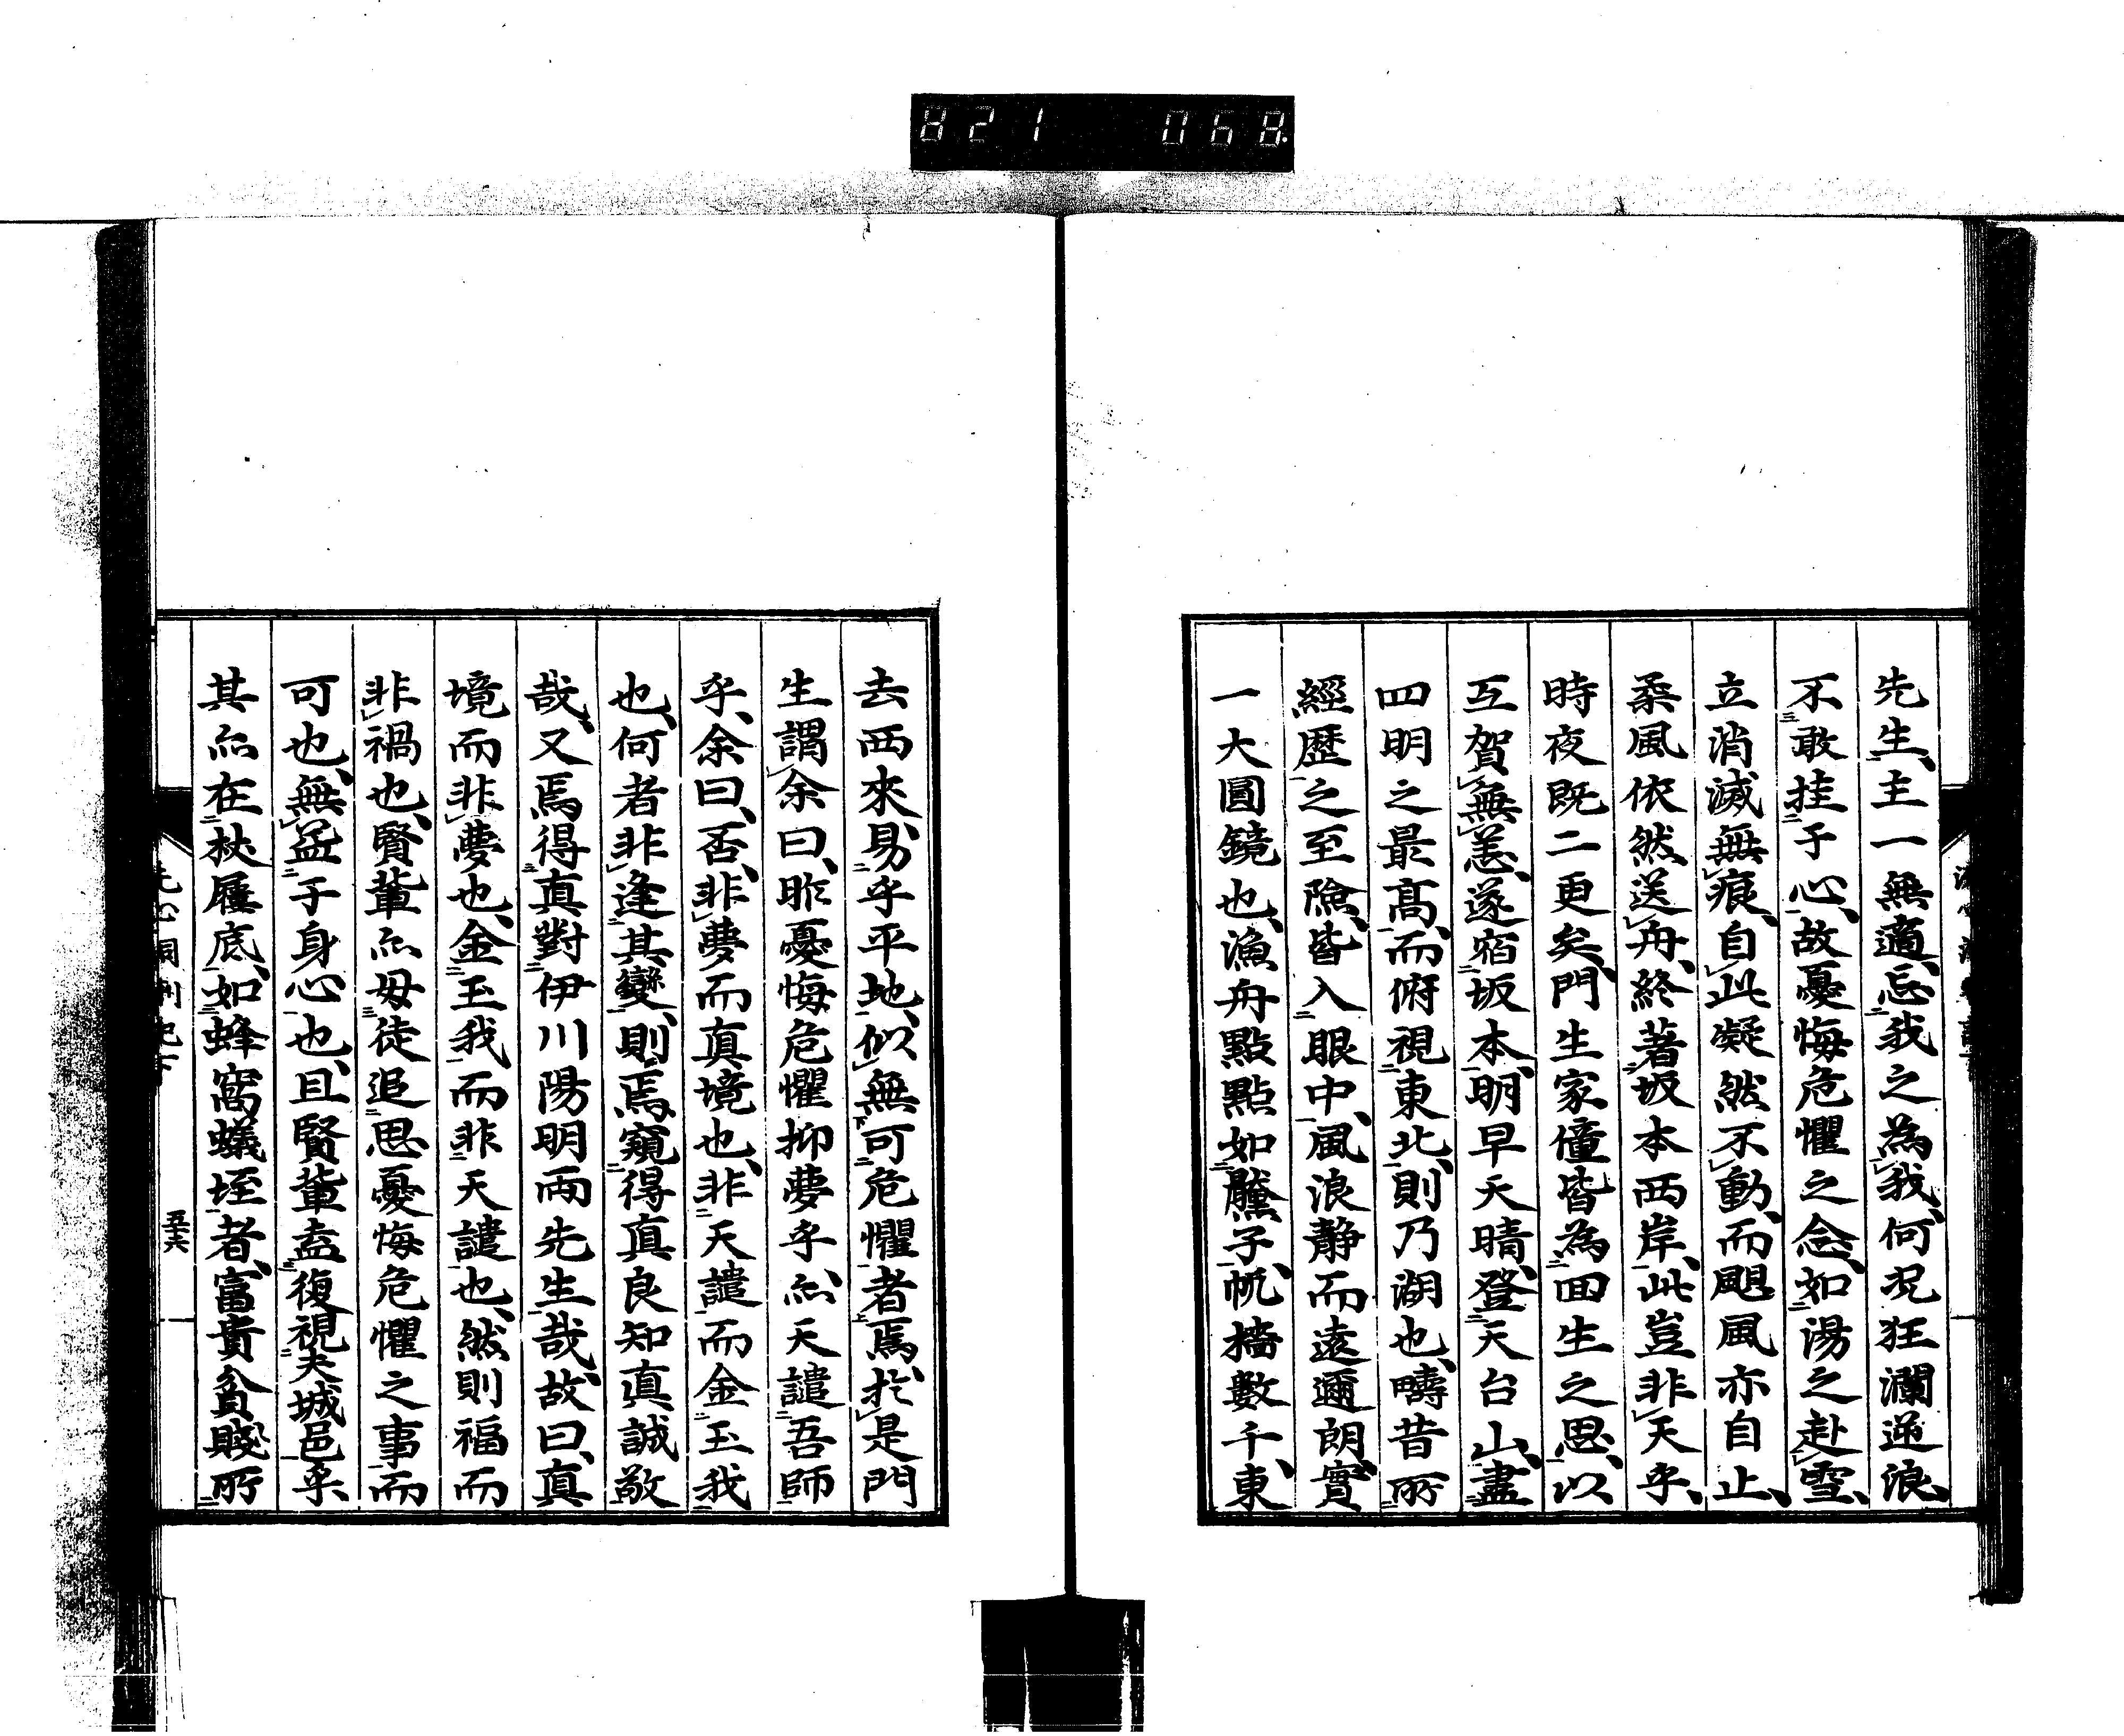 821 068
先生、主一無適、忘我之為我、何况狂瀾逆浪、
不敢挂于心、故憂悔危懼之念、如湯之赴雪、
立消滅無痕、自此凝然不動、而颶風亦自止、
柔風依然送舟、終著坂本西岸、此豈非天乎、
時夜既二更矣、門生家僮皆為回生之思、以
互賀無恙、遂宿坂本、明早天晴、登天台山、盡
四明之最高、而俯視東北、則乃湖也、疇昔所
經歴之至險、皆入眼中、風浪静而遠邇朗、實
一大圓鏡也、漁舟點點如𪑛子、帆檣數千、東
去西來、易乎平地、似無可危懼者焉、於是門
生謂余曰、昨憂悔危懼抑夢乎、亦天譴吾師
乎、余曰、否、非夢而真境也、非天譴而金玉我
也、何者非逢其變、則焉窺得真良知真誠敬
哉、又焉得真對伊川陽明兩先生哉、故曰、真
境而非夢也、金玉我而非天譴也、然則福而
非禍也、賢輩亦毋徒追思憂悔危懼之事而
可也、無益于身心也、且賢輩盍復視夫城邑乎、
其亦在杖屨底、如蜂窩蟻垤者、富貴貧賤所
五十六